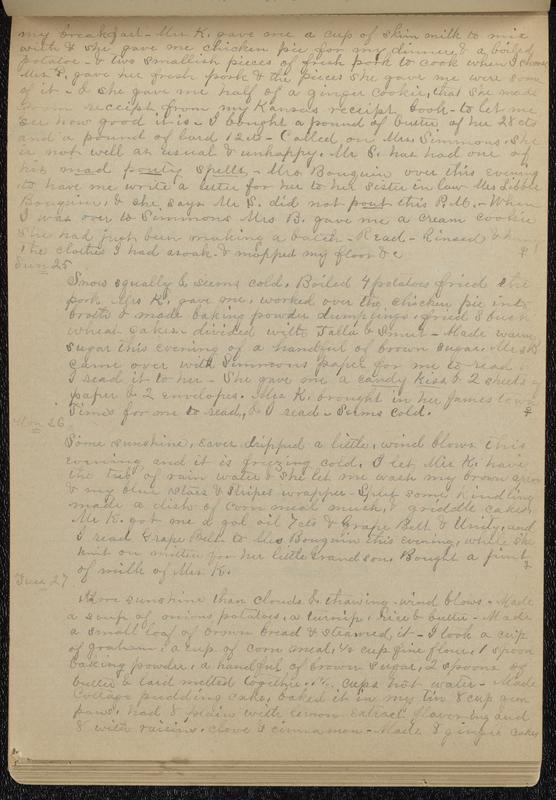 my breakfast - Mrs K. gave me a cup of skim milk to mix
with & she gave me chicken pie for my dinner, & a boiled
potatoe - & two smallish pieces of fresh pork to cook when I choose
Mrs S. gave her fresh pork & the pieces she gave me were some
of it - & she gave me half of a ginger cookie, that she made
receipt from my Kansas receipt book - to let me
see how good it is - I bought a pound of butter of her 28 cts
and a pound of lard 12 cts - Called on Mrs. Simmons. She
is not well as usual & unhappy. Mr S. has had one of
his mad pouty spells, - Mrs Bouquin over this evening
to have me write a letter for her to her sister in law Mrs Libbie
Bouquin, & she says Mr S. did not pout this P.M. - When
I was over to Simmons Mrs B. gave me a cream cookie
She had just been making a batch - Read - Rinsed &
the clothes I had asoak & mopped my floor & c
Sun 25
Snow squally & seems cold. Boiled 4 potatoes fried the
pork Mrs K. gave me, worked over the chicken pie into
broth & made baking powder dumplings, fried 8 buck
wheat cakes - divided with Talla & Smut - Made warm
sugar this evening of a handful of brown sugar. Mrs B
came over with Simmons paper for me to read &
I read it to her - She gave me a candy kiss & 2 sheets of
paper & 2 envelopes. Mrs K. brought in her Jamestown
Times for me to read, & I read - Seems cold.
Mon 26
Some sunshine, eaves dripped a little, wind blows this
evening and it is freezing cold. I let Mrs K. have
the tub of rain water & she let me wash my brown apron
& my blue stars & stripes wrapper - Split some kindling
made a dish of corn meal mush, & griddle cakes,
Mr K. got me a gal oil 7 cts & Grape Belt & Unity, and
I read Grape Belt to Mrs Bouquin this evening, while she
knit on mitten for her little grandson. Bought a pint
of milk of Mrs K.
Tues 27
More sunshine than clouds & thawing - wind blows - Made
a soup of onions potatoes, a turnip, rice & butter - Made
a small loaf of brown bread & steamed it - I took a cup
of graham, a cup of corn meal, 1/2 cup fine flour, 1 spoon
baking powder, a handful of brown sugar, 2 spoons of
butter & lard melted together, 1 1/2 cups hot water - Made
Cottage pudding cake, baked it in my tin 8 cup gem
pans, had 8 plain with lemon extract flavoring and
8 with raisins, clove & cinnamon - Made 8 ginger cakes